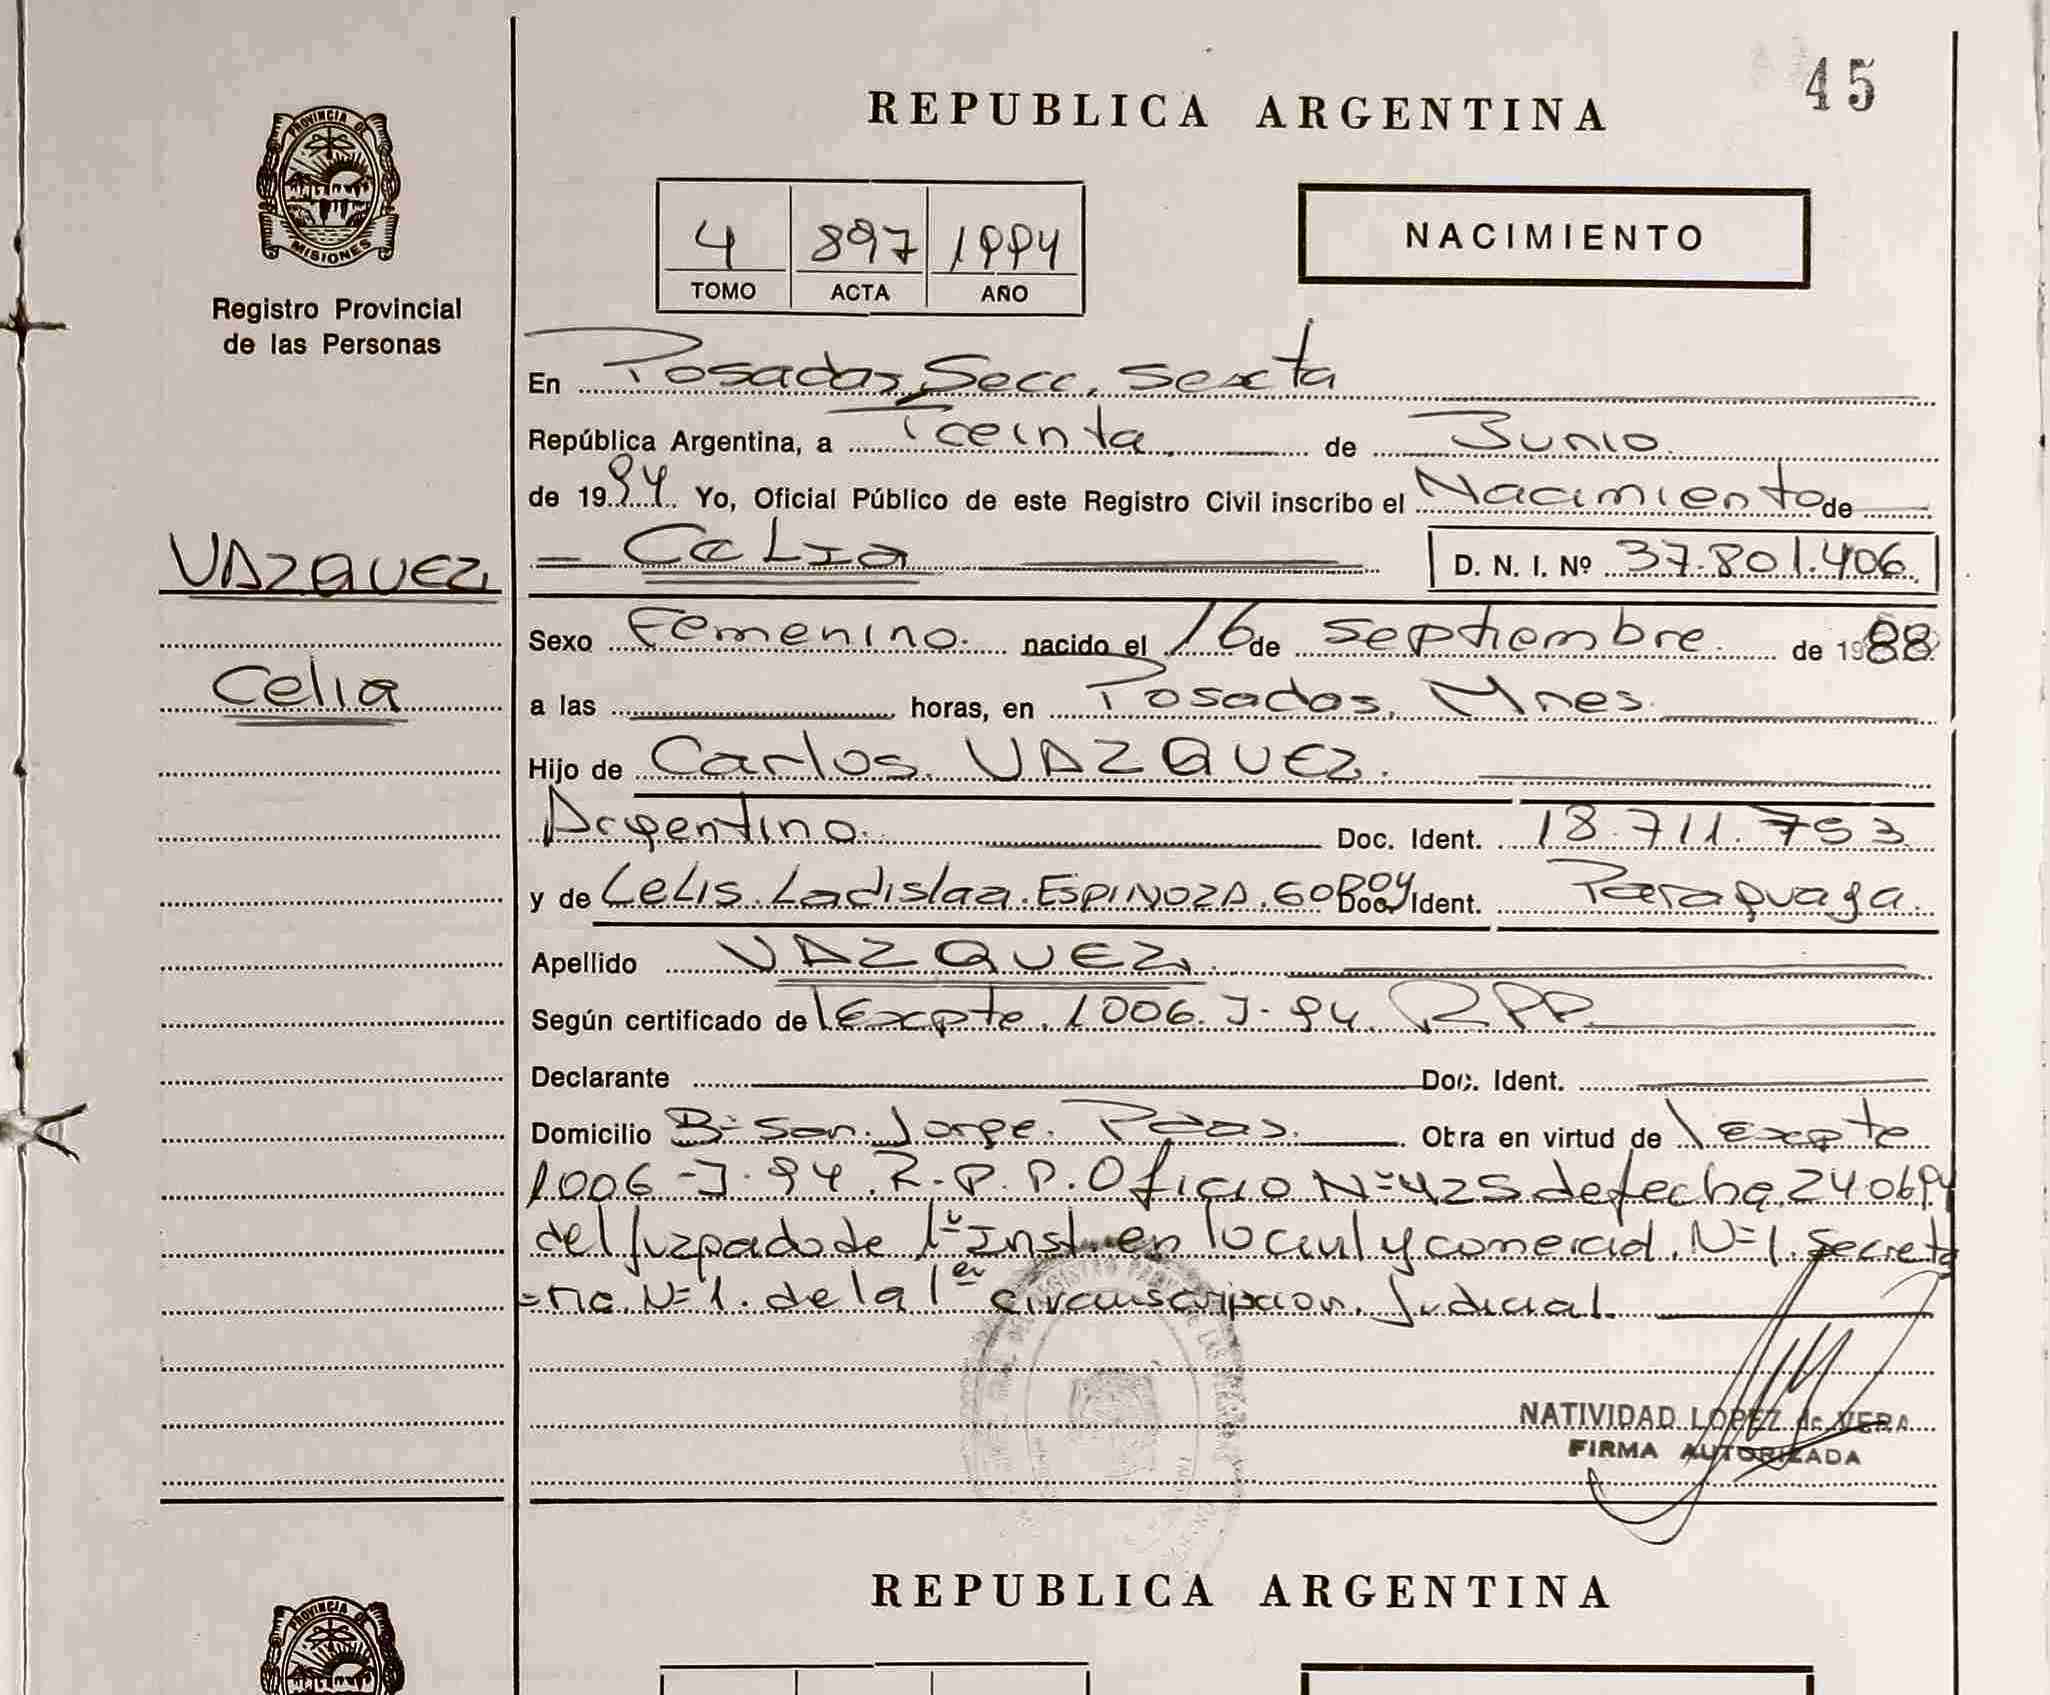 45
REPUBLICA ARGENTINA
PROVINCIA DE
MISIONES
Registro Provincial
de las Personas
4 897 1994
TOMO ACTA AÑO
NACIMIENTO
En Posadas, Secc. Sexta
República Argentina, a Treinta de Junio
de 1994 Yo, Oficial Público de este Registro Civil inscribo el Nacimiento de
VAZQUEZ
Celia
Celia D. N. I. Nº 37.801.406
Sexo Femenino. nacido el 16 de septiembre de 1988
a las horas, en Posadas, Mnes
Hijo de Carlos VAZQUEZ.
Argentino. Doc. Ident. 18.711.753
y de Celis Ladislaa ESPINOZA GODOY Doc. Ident. Paraguaya.
Apellido VAZQUEZ.
Según certificado de Expte. 1006-J-94. RPP
Declarante Doc. Ident.
Domicilio Bº San Jorge. Pdas. Obra en virtud de Expte
1006-J-94. R.P.P. Oficio Nº 425 de fecha 240694
del Juzgado de 1º Inst. en lo civil y comercial. Nº 1. Secreta
=ria Nº 1. de la 1er circunscripcion Judicial.
NATIVIDAD LOPEZ de VERA
FIRMA AUTORIZADA
REPUBLICA ARGENTINA
PROVINCIA DE